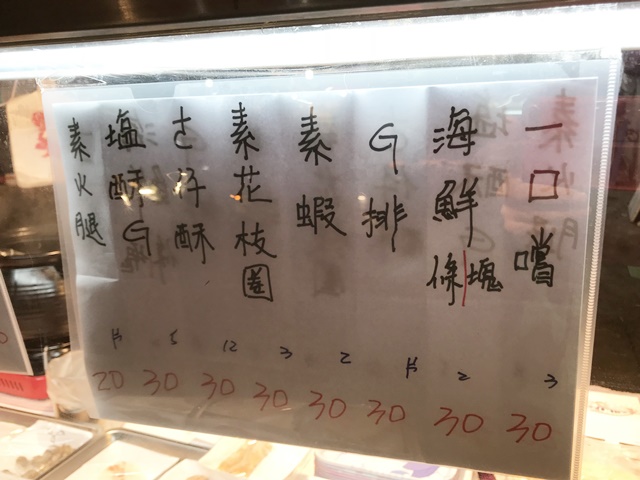 一口嚐 3 30
海鮮條塊 2 30
G排 片 30
素蝦 2 30
素花枝圈 3 30
酥 12 30
塩酥G 5 30
素火腿 片 20